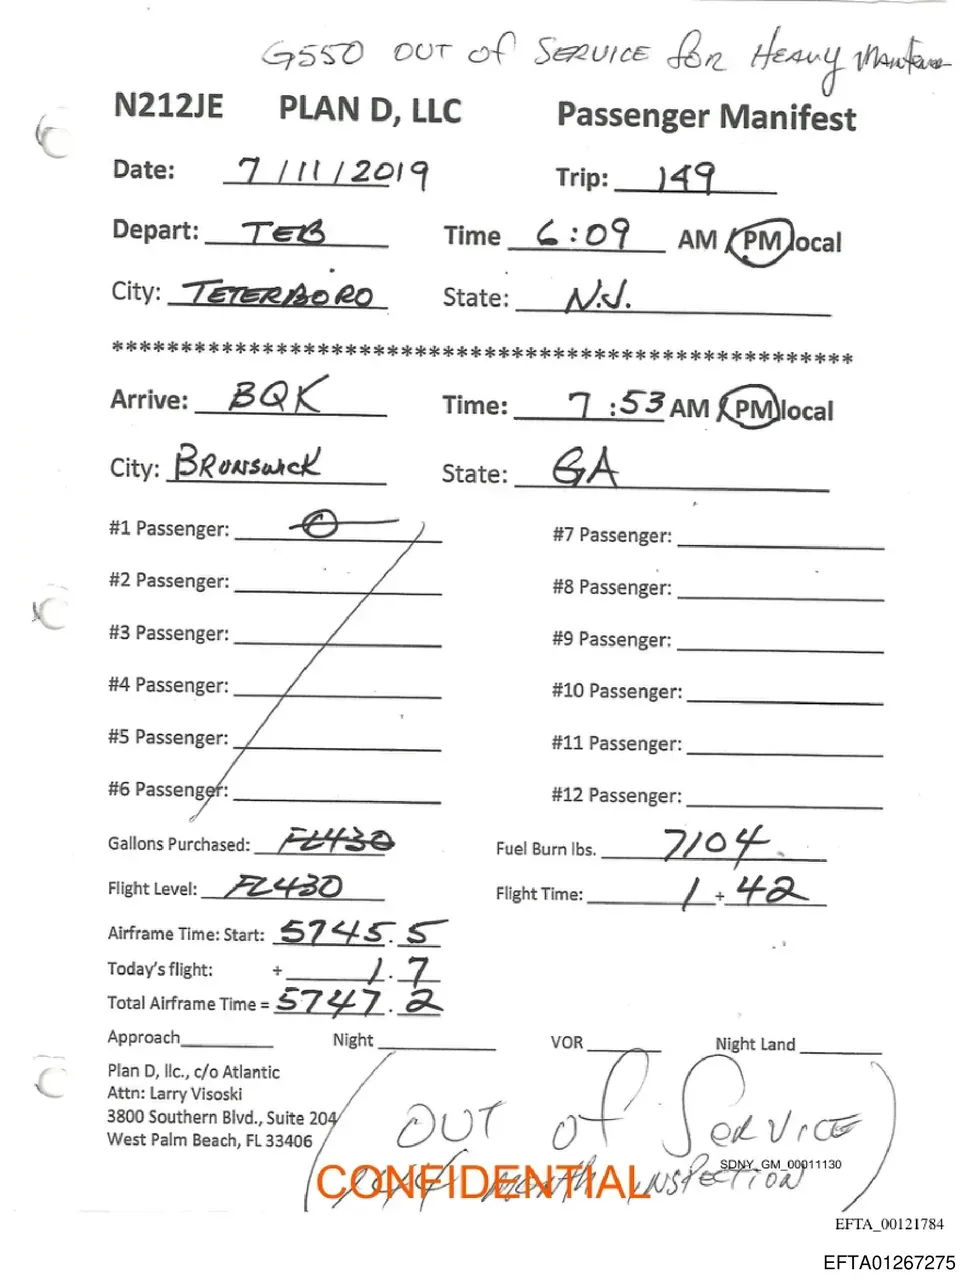 G550 OUT OF SERVICE FOR HEAVY
N212JE PLAN D, LLC Passenger Manifest
Date: 7/11/2019 Trip: 149
Depart: TEB Time 6:09 AM / PM local
City: TETERBORO State: N.J.
******************************************************
Arrive: BQK Time: 7:53 AM / PM local
City: BRUNSWICK State: GA
#1 Passenger: 0 #7 Passenger:
#2 Passenger: #8 Passenger:
#3 Passenger: #9 Passenger:
#4 Passenger: #10 Passenger:
#5 Passenger: #11 Passenger:
#6 Passenger: #12 Passenger:
Gallons Purchased: FL430 Fuel Burn lbs. 7104
Flight Level: FL430 Flight Time: 1 + 42
Airframe Time: Start: 5745.5
Today's flight: + 1.7
Total Airframe Time = 5747.2
Approach Night VOR Night Land
Plan D, llc., c/o Atlantic
Attn: Larry Visoski
3800 Southern Blvd., Suite 204
West Palm Beach, FL 33406
OUT OF SERVICE
SDNY_GM_00011130
CONFIDENTIAL
MONTH INSPECTION
EFTA_00121784
EFTA01267275